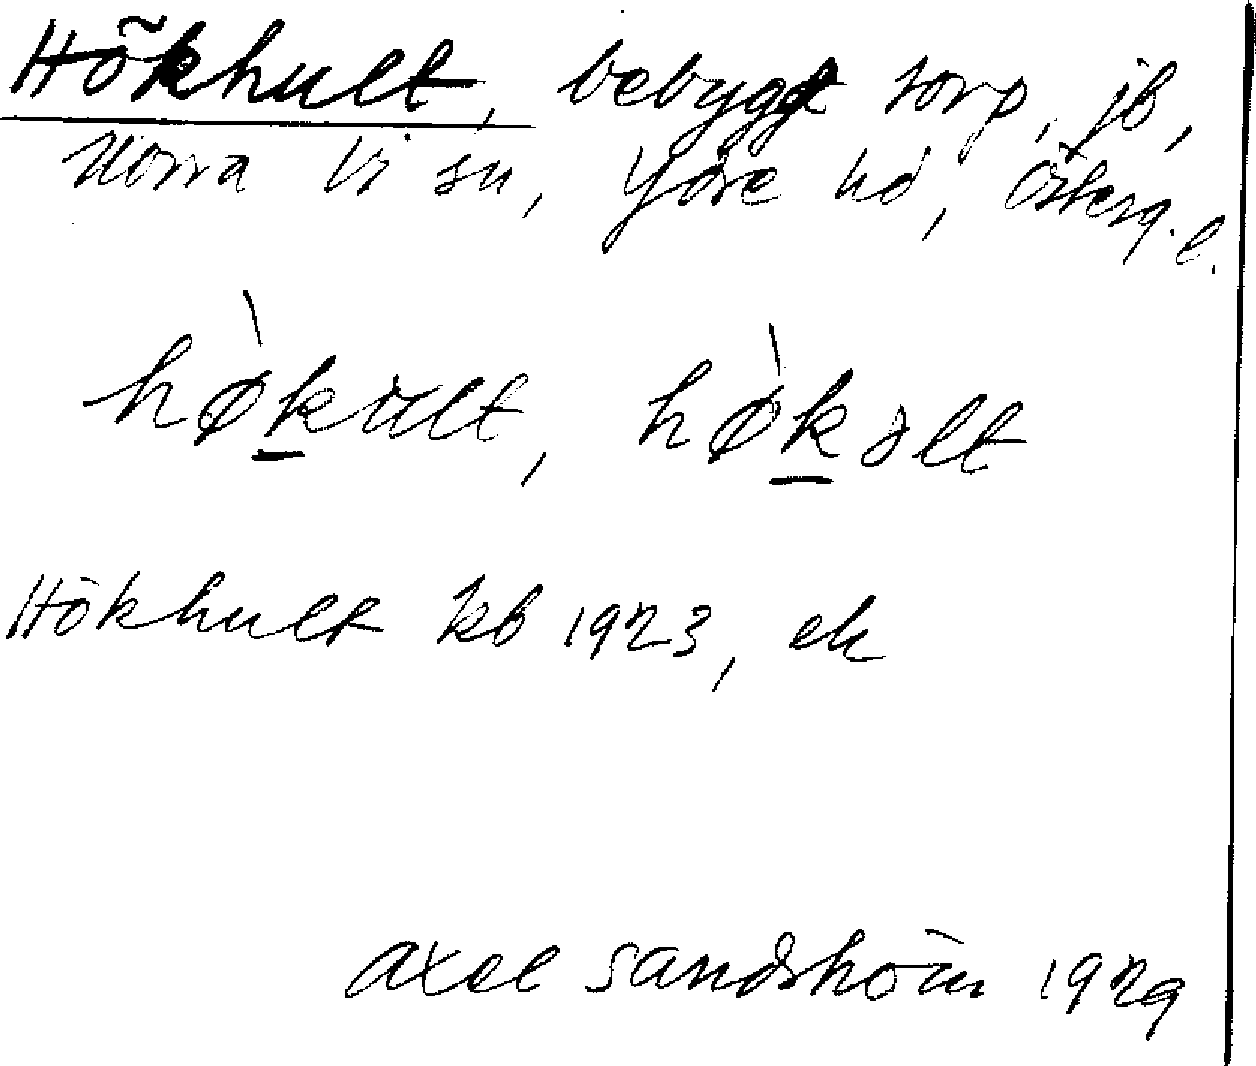 Hökhult, bebyggt torp, jb,
Norra Vi sn, Ydre hd, Österg. l.
hø̀kult, hø̀kolt
Hökhult kb 1923, ek
Axel Sandström 1929